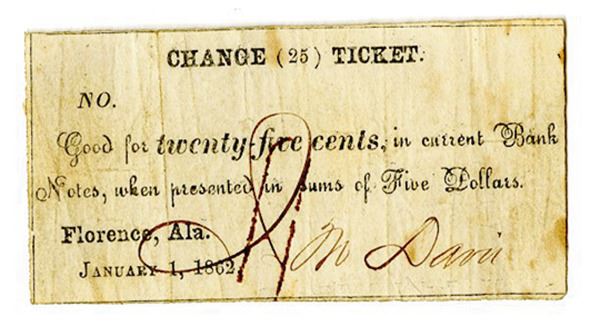 CHANGE (25) TICKET.
NO.
Good for twenty-five cents, in current Bank
Notes, when presented in sums of Five Dollars.
Florence, Ala.
JANUARY 1, 1862
M Davis